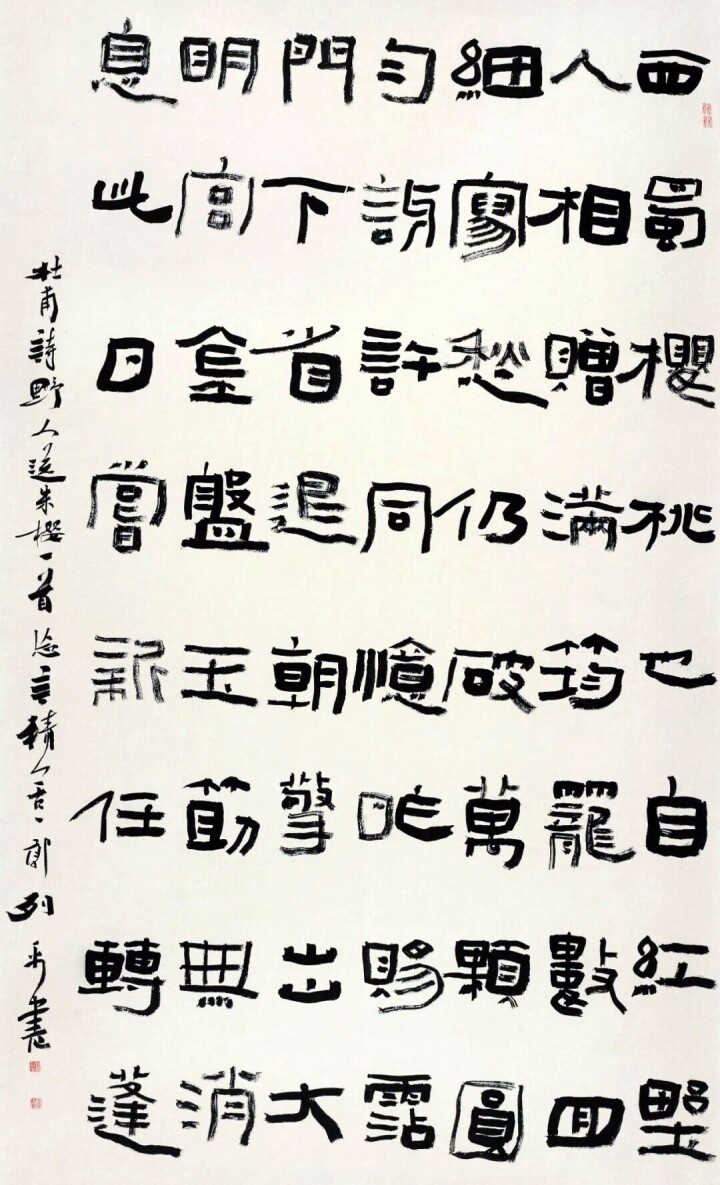 西蜀櫻桃也自紅野
人相贈滿筠籠數回
細寫愁仍破萬顆圓
勻訝許同憶昨賜霑
門下省退朝擎出大
明宮金盤玉筯無消
息此日嘗新任轉蓬
杜甫詩野人送朱櫻一首 書